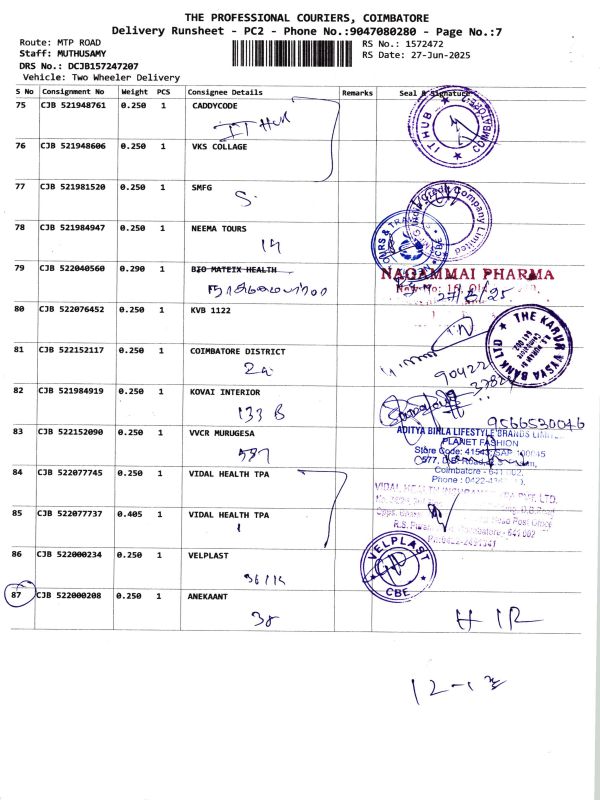 THE PROFESSIONAL COURIERS, COIMBATORE
Delivery Runsheet - PC2 - Phone No.:9047080280 - Page No.:7
Route: MTP ROAD
Staff: MUTHUSAMY
DRS No.: DCJB157247207
Vehicle: Two Wheeler Delivery
RS No.: 1572472
RS Date: 27-Jun-2025
S No Consignment No Weight PCS Consignee Details Remarks Seal & Signature
75 CJB 521948761 0.250 1 CADDYCODE
IT HUB
IT HUB COIMBATORE
76 CJB 521948606 0.250 1 VKS COLLAGE
77 CJB 521981520 0.250 1 SMFG
S.
Credit Company Limited
78 CJB 521984947 0.250 1 NEEMA TOURS
CBE
79 CJB 522040560 0.290 1 BIO MATEIX HEALTH
NAGAMMAI PHARMA
80 CJB 522076452 0.250 1 KVB 1122
THE KARUR VYSYA BANK LTD
81 CJB 522152117 0.250 1 COIMBATORE DISTRICT
2a
90422
82 CJB 521984919 0.250 1 KOVAI INTERIOR
133 B
9566530046
83 CJB 522152090 0.250 1 VVCR MURUGESA
587
ADITYA BIRLA LIFESTYLE BRANDS LIMITED
PLANET FASHION
Store Code: 41543
Coimbatore - 641 002,
Phone : 0422-
84 CJB 522077745 0.250 1 VIDAL HEALTH TPA
VIDAL HEALTH INSURANCE TPA PVT. LTD.
85 CJB 522077737 0.405 1 VIDAL HEALTH TPA
Head Post Office
Coimbatore - 641 002
86 CJB 522000234 0.250 1 VELPLAST
VELPLAST CBE
87 CJB 522000208 0.250 1 ANEKAANT
38